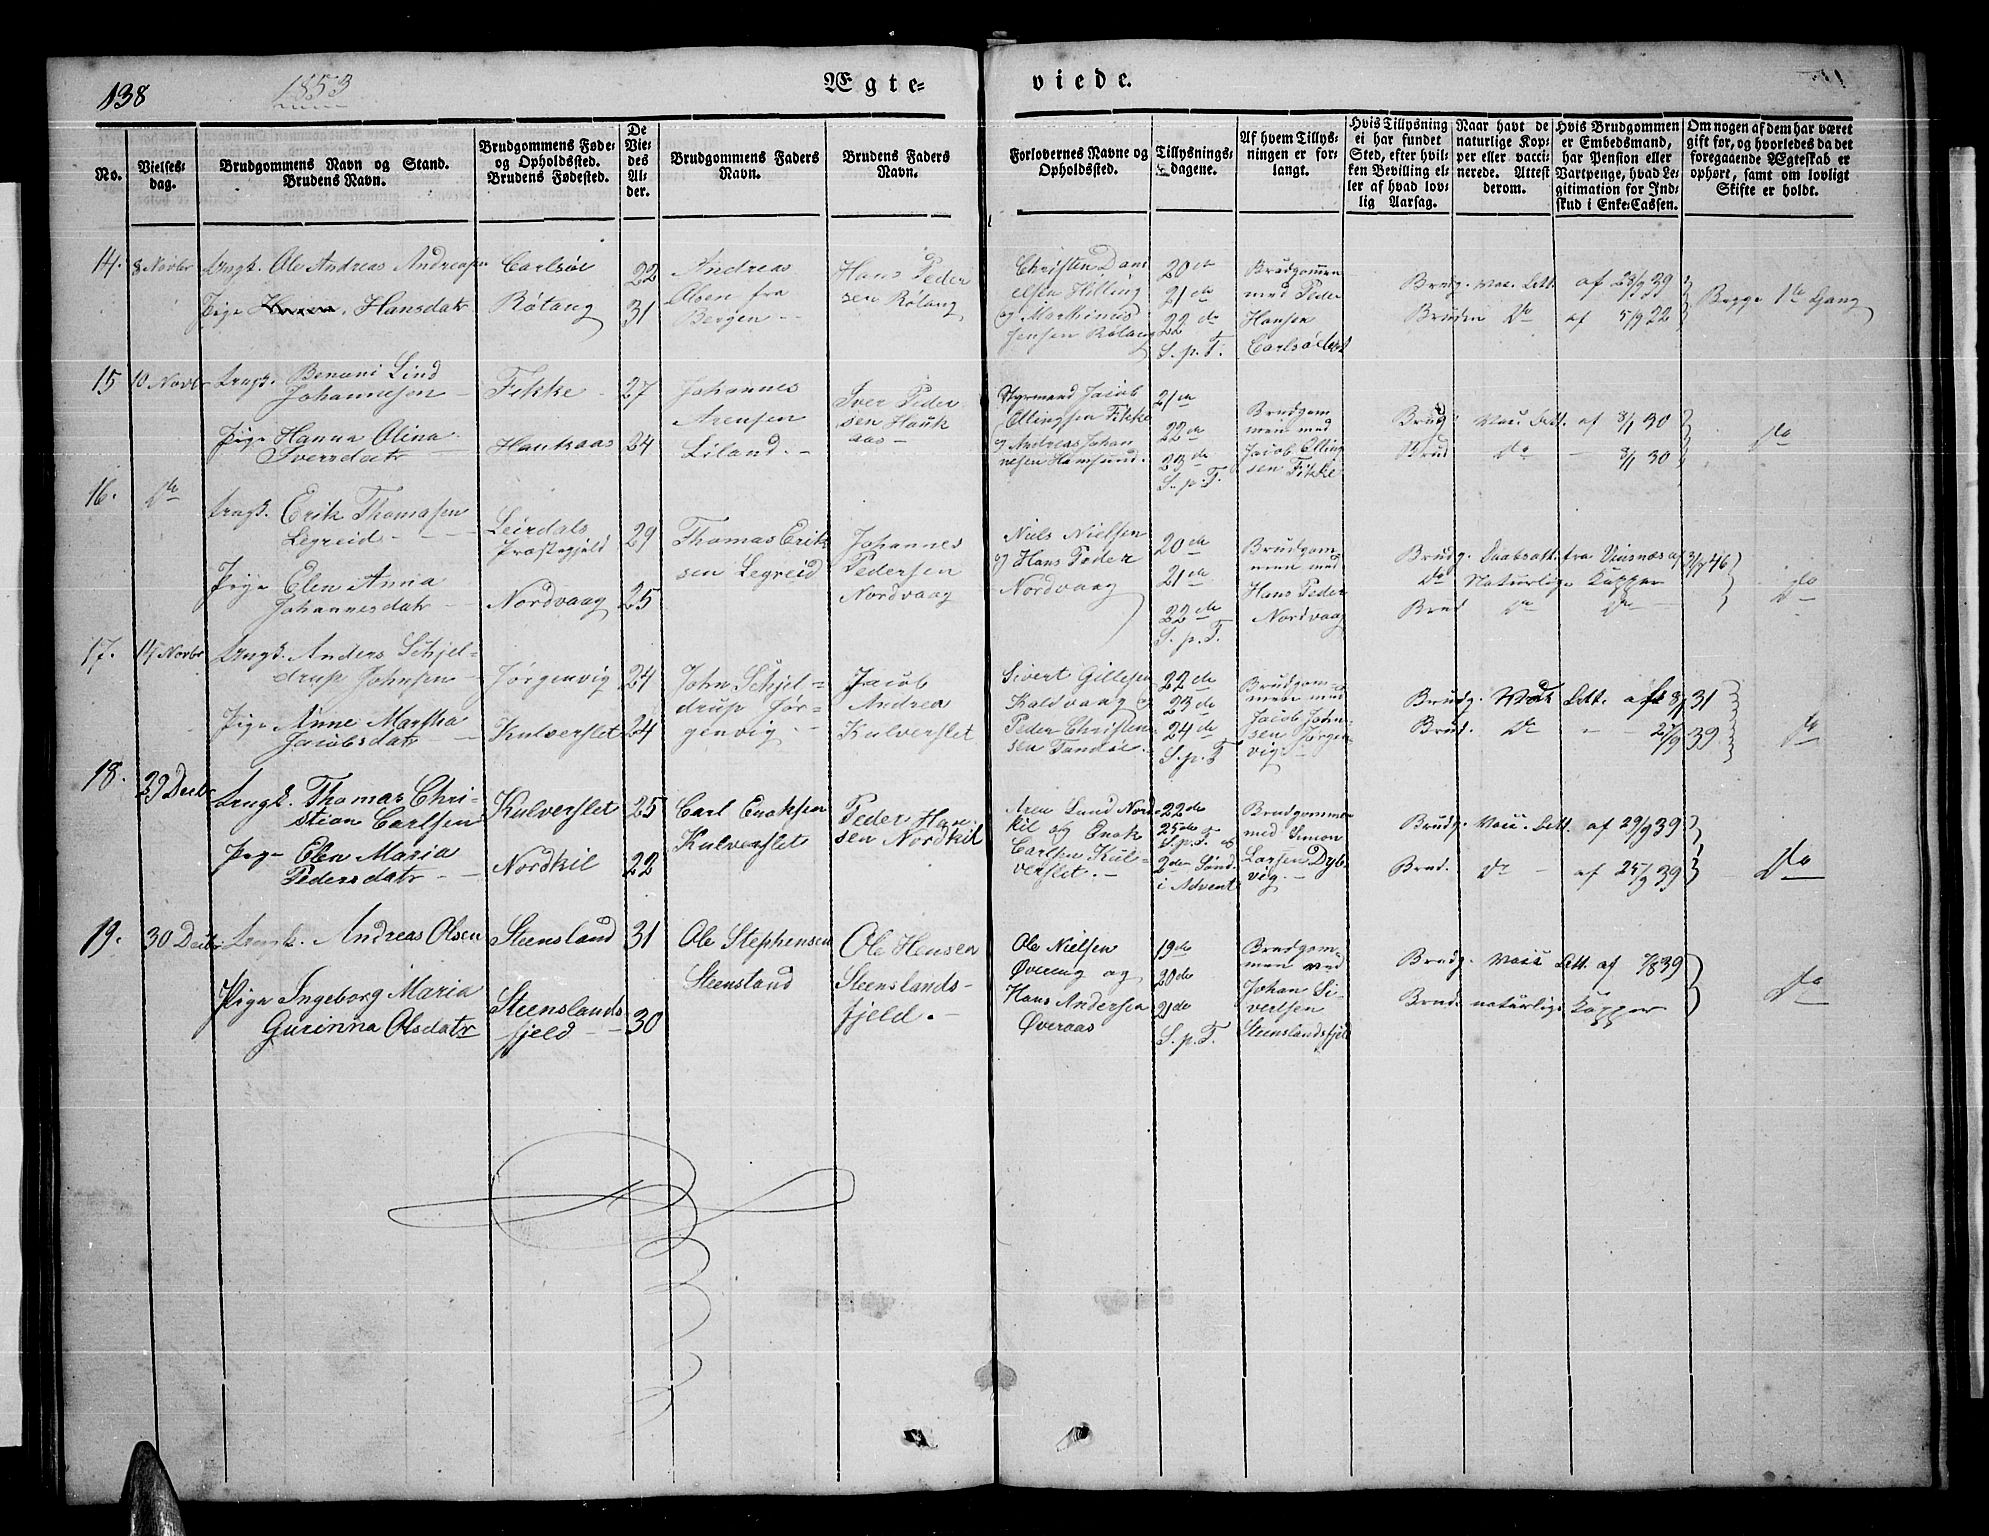 138
1853
Ægte-
viede.
No.
Vielses-
dag.
Brudgommens Navn og Stand.
Brudens Navn.
Brudgommens Føde-
og Opholdssted.
Brudens Fødested.
De
Vie-
des
Al-
der.
Brudgommens Faders
Navn.
Brudens Faders
Navn.
Forlovernes Navne og
Opholdssted.
Tillysnings-
dagene.
Af hvem Tillys-
ningen er for-
langt.
Hvis Tillysning
ei har fundet
Sted, efter hvil-
ken Bevilling el-
ler af hvad lov-
lig Aarsag.
Naar havt de
naturlige Kop-
per eller vacci-
nerede. Attest
derom.
Hvis Brudgommen
er Embedsmand,
har Pension eller
Vartpenge, hvad Le-
gitimation for Ind-
skud i Enke-Cassen.
Om nogen af dem har været
gift før, og hvorledes da det
foregaaende Ægteskab er
ophørt, samt om lovligt
Skifte er holdt.
14.
8 Novbr
Ungk. Ole Andreas Andreasen
Pige Hansdatr
Carlsøe
Røtang
22
31
Andreas
Olsen fra
Bergen
Hans Peder
sen Røtang
Christen Dani
elsen Hilling
og Martinus
Jensen Røtang
20de
21de
22de
S. p. T.
Brudgommen
med Peder
Hansen
Carlsø
Brudg. Vac. Att. af 23/9 39
Bruden Do af 5/9 22
Begge 1te Gang
15
10 Novbr
Ungk. Benoni Lind
Johannesen
Pige Hanna Olina
Iversdatr
Fikke
Haukaas
27
24
Johannes
Arensen
Liland
Iver Peder
sen Hauk
aas
Styrmand Jacob
Ellingsen Fikke
og Andreas Johan
nesen Hamsund
21de
22de
23de
S. p. T.
Brudgom
men med
Jacob Elling
sen Fikke
Brudg. Vac. Att. af 8/1 30
Brud Do - 8/1 30
Do
16.
Do
Ungk. Erik Thomasen
Legreid
Pige Elen Anna
Johannesdatr
Leirdals
Præstegjeld
Nordvaag
29
25
Thomas Erik
sen Legreid
Johannes
Pedersen
Nordvaag
Niels Nielsen
og Hans Peder
Nordvaag
20de
21de
22de
S. p. T.
Brudgom-
men med
Hans Peder
Nordvaag
Brudg. Daabsatt. fra
Do Naturlige Kopper
Brud Do Do
Do
17.
14 Novbr
Ungk. Anders Schjel-
drup Johnsen
Pige Anne Martha
Jacobsdatr
Jørgenvig
Kulverslet
24
24
John Schjel-
drup Jør-
genvig
Jacob
Andrea
Kulverslet
Sivert Gillesen
Kaldvaag og
Peder Christen
sen Tandøe
22de
23de
24de
S. p. T
Brudgom-
men med
Jacob John-
sen Jørgen-
vig
Brudg. Att. af 8/1 31
Brud. Do 25/9 39
Do
18.
29 Decbr
Ungk. Thomas Chri-
stian Carlsen
Pige Elen Maria
Pedersdatr
Kulverslet
Nordkil
25
22
Carl Enoksen
Kulverslet
Peder Han-
sen Nordkil
Aren Lund Nord-
kil og Enok
Carlsen Kul-
verslet
22de
25de
S. p. T. og
2den Sønd
i Advent
Brudgommen
med Simon
Larsen Dyb-
vig
Brudg. Vacc. Att. af 29/9 39
Brud. Do - af 25/9 39
Do
19.
30 Decbr
Ungk. Andreas Olsen
Pige Ingeborg Maria
Gurinna Olsdatr
Steensland
Steenslands-
fjeld
31
30
Ole Stephensen
Steensland
Ole Hensen
Steenslands-
fjeld
Ole Nielsen
Øvereng og
Hans Andersen
Øveraas
19de
20de
21de
S. p. T.
Brudgom-
men ved
Johan Si-
vertsen
Steenslandsfjeld
Brudg. Vacc. Att. af 7/8 39
Brud. naturlige Kopper
Do